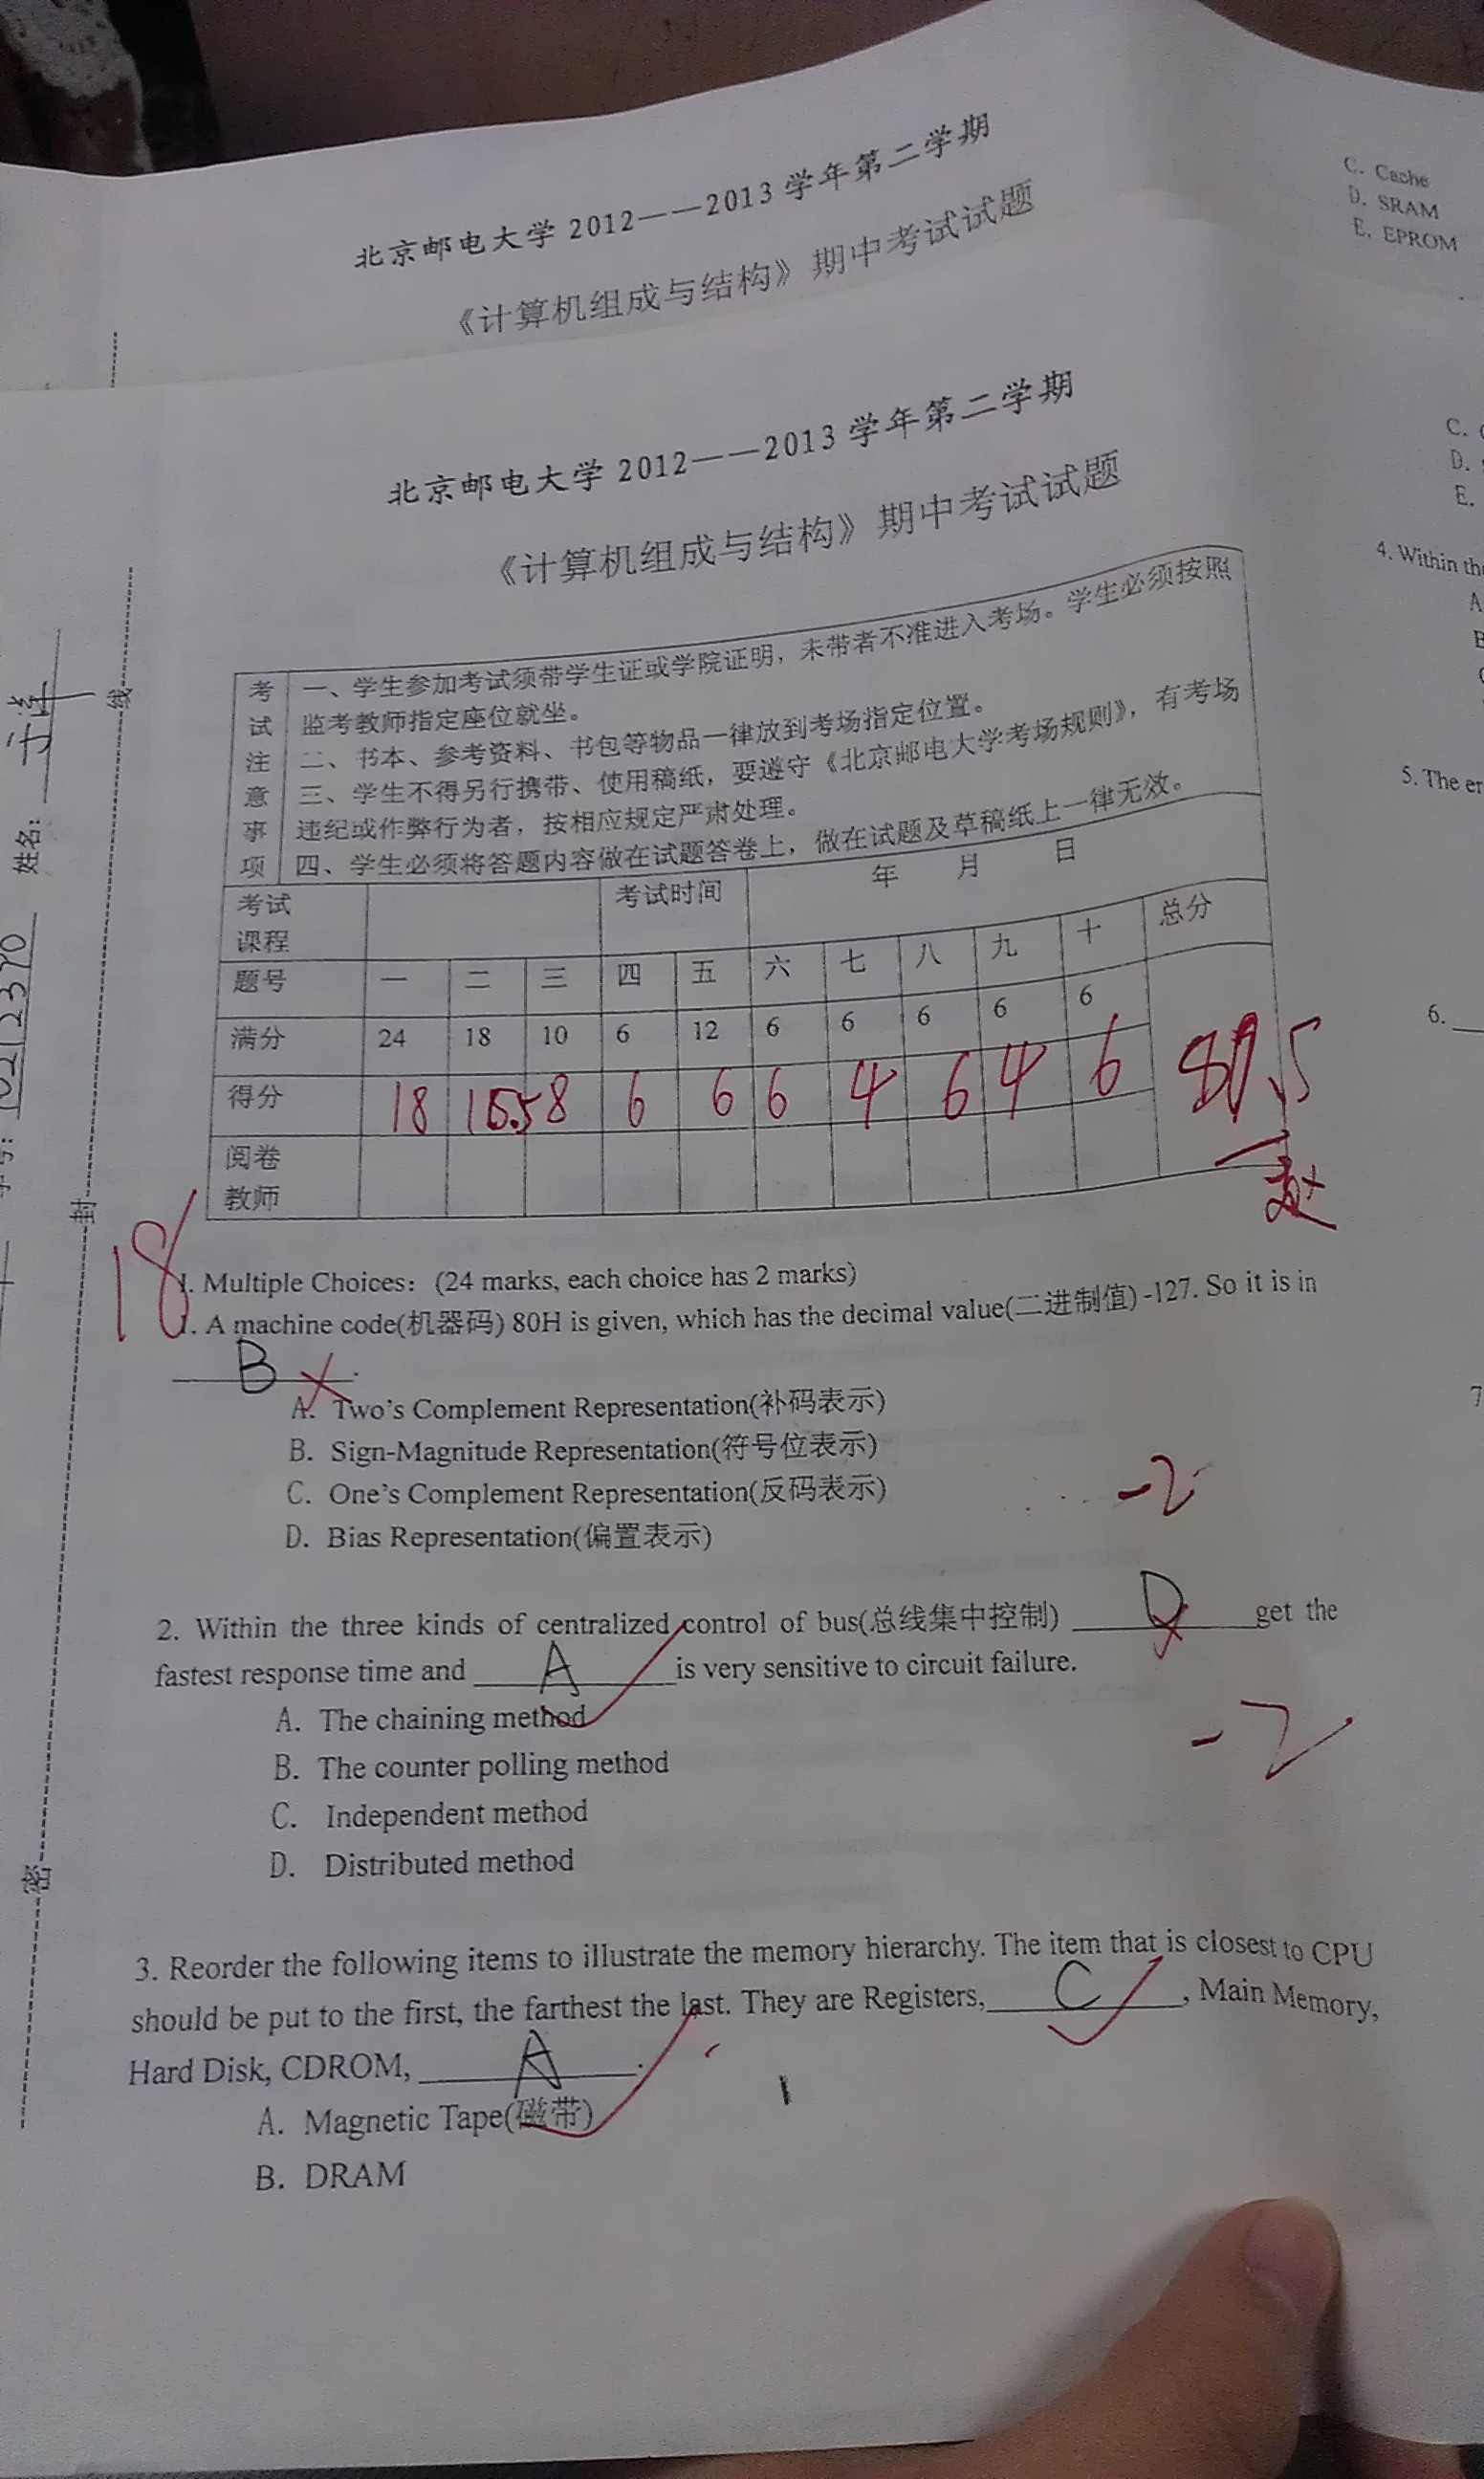 北京邮电大学 2012——2013 学年第二学期
《计算机组成与结构》期中考试试题
C. Cache
D. SRAM
E. EPROM
北京邮电大学 2012——2013 学年第二学期
《计算机组成与结构》期中考试试题
考试注意事项
一、学生参加考试须带学生证或学院证明，未带者不准进入考场。学生必须按照
监考教师指定座位就坐。
二、书本、参考资料、书包等物品一律放到考场指定位置。
三、学生不得另行携带、使用稿纸，要遵守《北京邮电大学考场规则》，有考场
违纪或作弊行为者，按相应规定严肃处理。
四、学生必须将答题内容做在试题答卷上，做在试题及草稿纸上一律无效。
考试课程 考试时间 年 月 日
题号 一 二 三 四 五 六 七 八 九 十 总分
满分 24 18 10 6 12 6 6 6 6 6
得分 18 15.5 8 6 6 6 4 6 4 6
阅卷教师
姓名:
线
封
密
18
I. Multiple Choices: (24 marks, each choice has 2 marks)
1. A machine code(机器码) 80H is given, which has the decimal value(二进制值) -127. So it is in
B .
A. Two's Complement Representation(补码表示)
B. Sign-Magnitude Representation(符号位表示)
C. One's Complement Representation(反码表示)
D. Bias Representation(偏置表示)
-2
2. Within the three kinds of centralized control of bus(总线集中控制) D get the
fastest response time and A is very sensitive to circuit failure.
A. The chaining method
B. The counter polling method
C. Independent method
D. Distributed method
-2
3. Reorder the following items to illustrate the memory hierarchy. The item that is closest to CPU
should be put to the first, the farthest the last. They are Registers, C , Main Memory,
Hard Disk, CDROM, A .
A. Magnetic Tape(磁带)
B. DRAM
C.
D.
E.
4. Within
5. The
6.
7